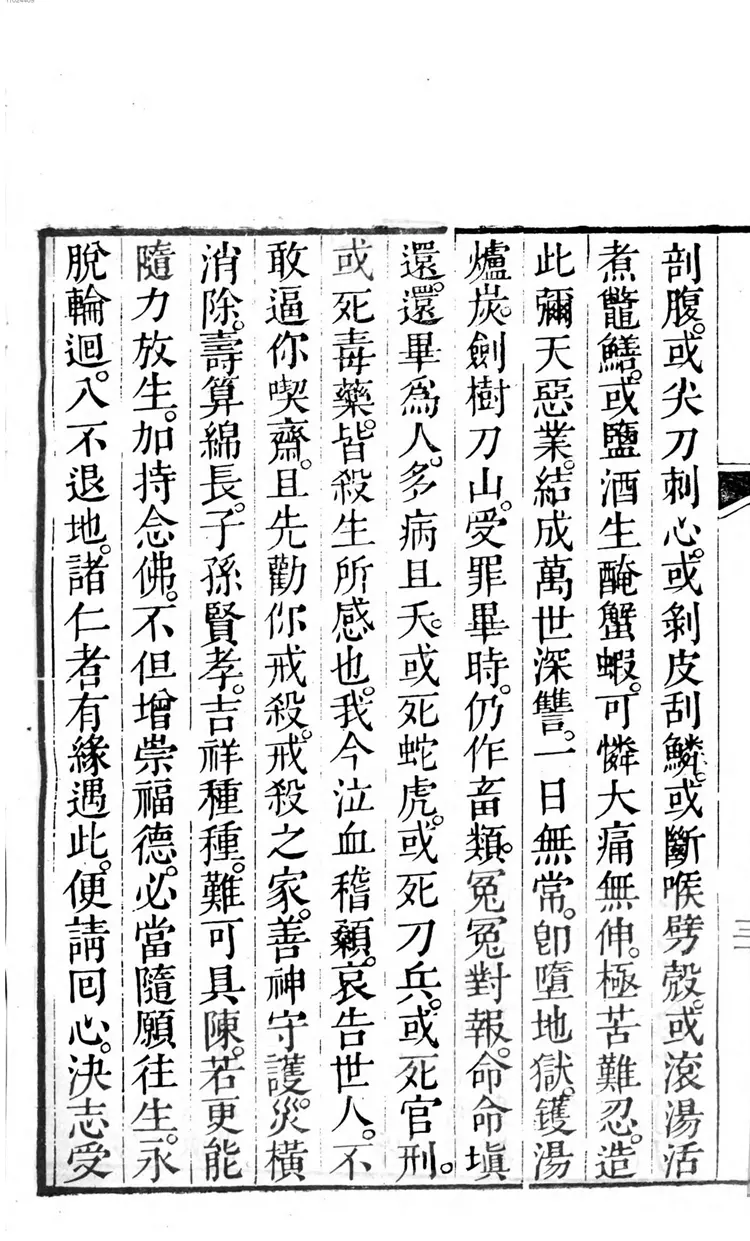 剖腹。或尖刀刺心。或剝皮刮鱗。或斷喉劈殼。或滾湯活
煮鼈鱔。或鹽酒生醃蟹蝦。可憐大痛無伸。極苦難忍。造
此彌天惡業。結成萬世深讐。一日無常。卽墮地獄。鑊湯
爐炭。劍樹刀山。受罪畢時。仍作畜類。冤冤對報。命命塡
還。還畢爲人。多病且夭。或死蛇虎。或死刀兵。或死官刑。
或死毒藥。皆殺生所感也。我今泣血稽顙。哀告世人。不
敢逼你喫齋。且先勸你戒殺。戒殺之家。善神守護。災橫
消除。壽算綿長。子孫賢孝。吉祥種種。難可具陳。若更能
隨力放生。加持念佛。不但增崇福德。必當隨願往生。永
脫輪迴。入不退地。諸仁者有緣遇此。便請回心。決志受
三